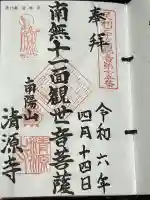 奉拝
令和六年
四月十四日
南無十一面観世音菩薩
南陽山
清源寺